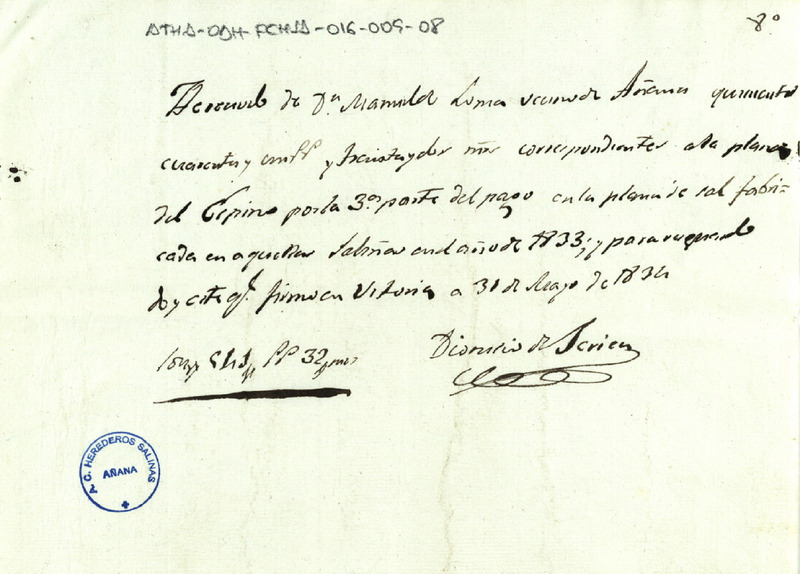 ATHA-DAH-FCHSA-016-009-08
8º
de Dn Manuel de Loma vecino de Añana quinientos
cuarenta y un rr y treinta y dos mrs correspondientes a la plana
del Espino por la 3ª parte del pago en la plana de sal fabri-
cada en aquellas Salinas en el año de 1833; y para resguardo
doy este qe firmo en Vitoria a 31 de Mayo de 1834
Son 541 rr 32 mrs
Dionisio de
C. HEREDEROS SALINAS
AÑANA